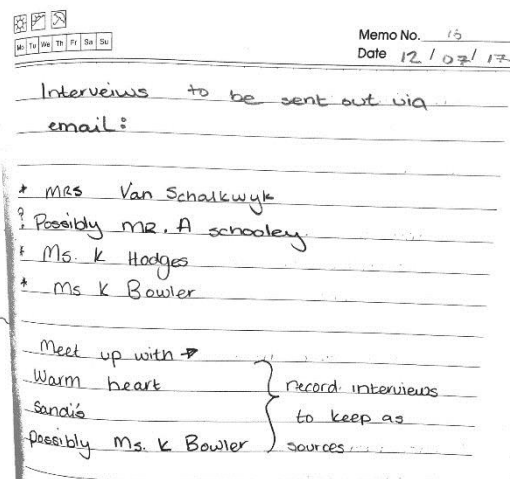 Mo Tu We Th Fr Sa Su
Memo No. 10
Date 12 / 07 / 17
Interveiws to be sent out via
email:
* MRS Van Schalkwyk
? Possibly MR. A schooley
* Ms. K Hodges
* Ms K Bowler
Meet up with →
Warm heart
Sandis
possibly Ms. K Bowler
record interviews
to keep as
sources